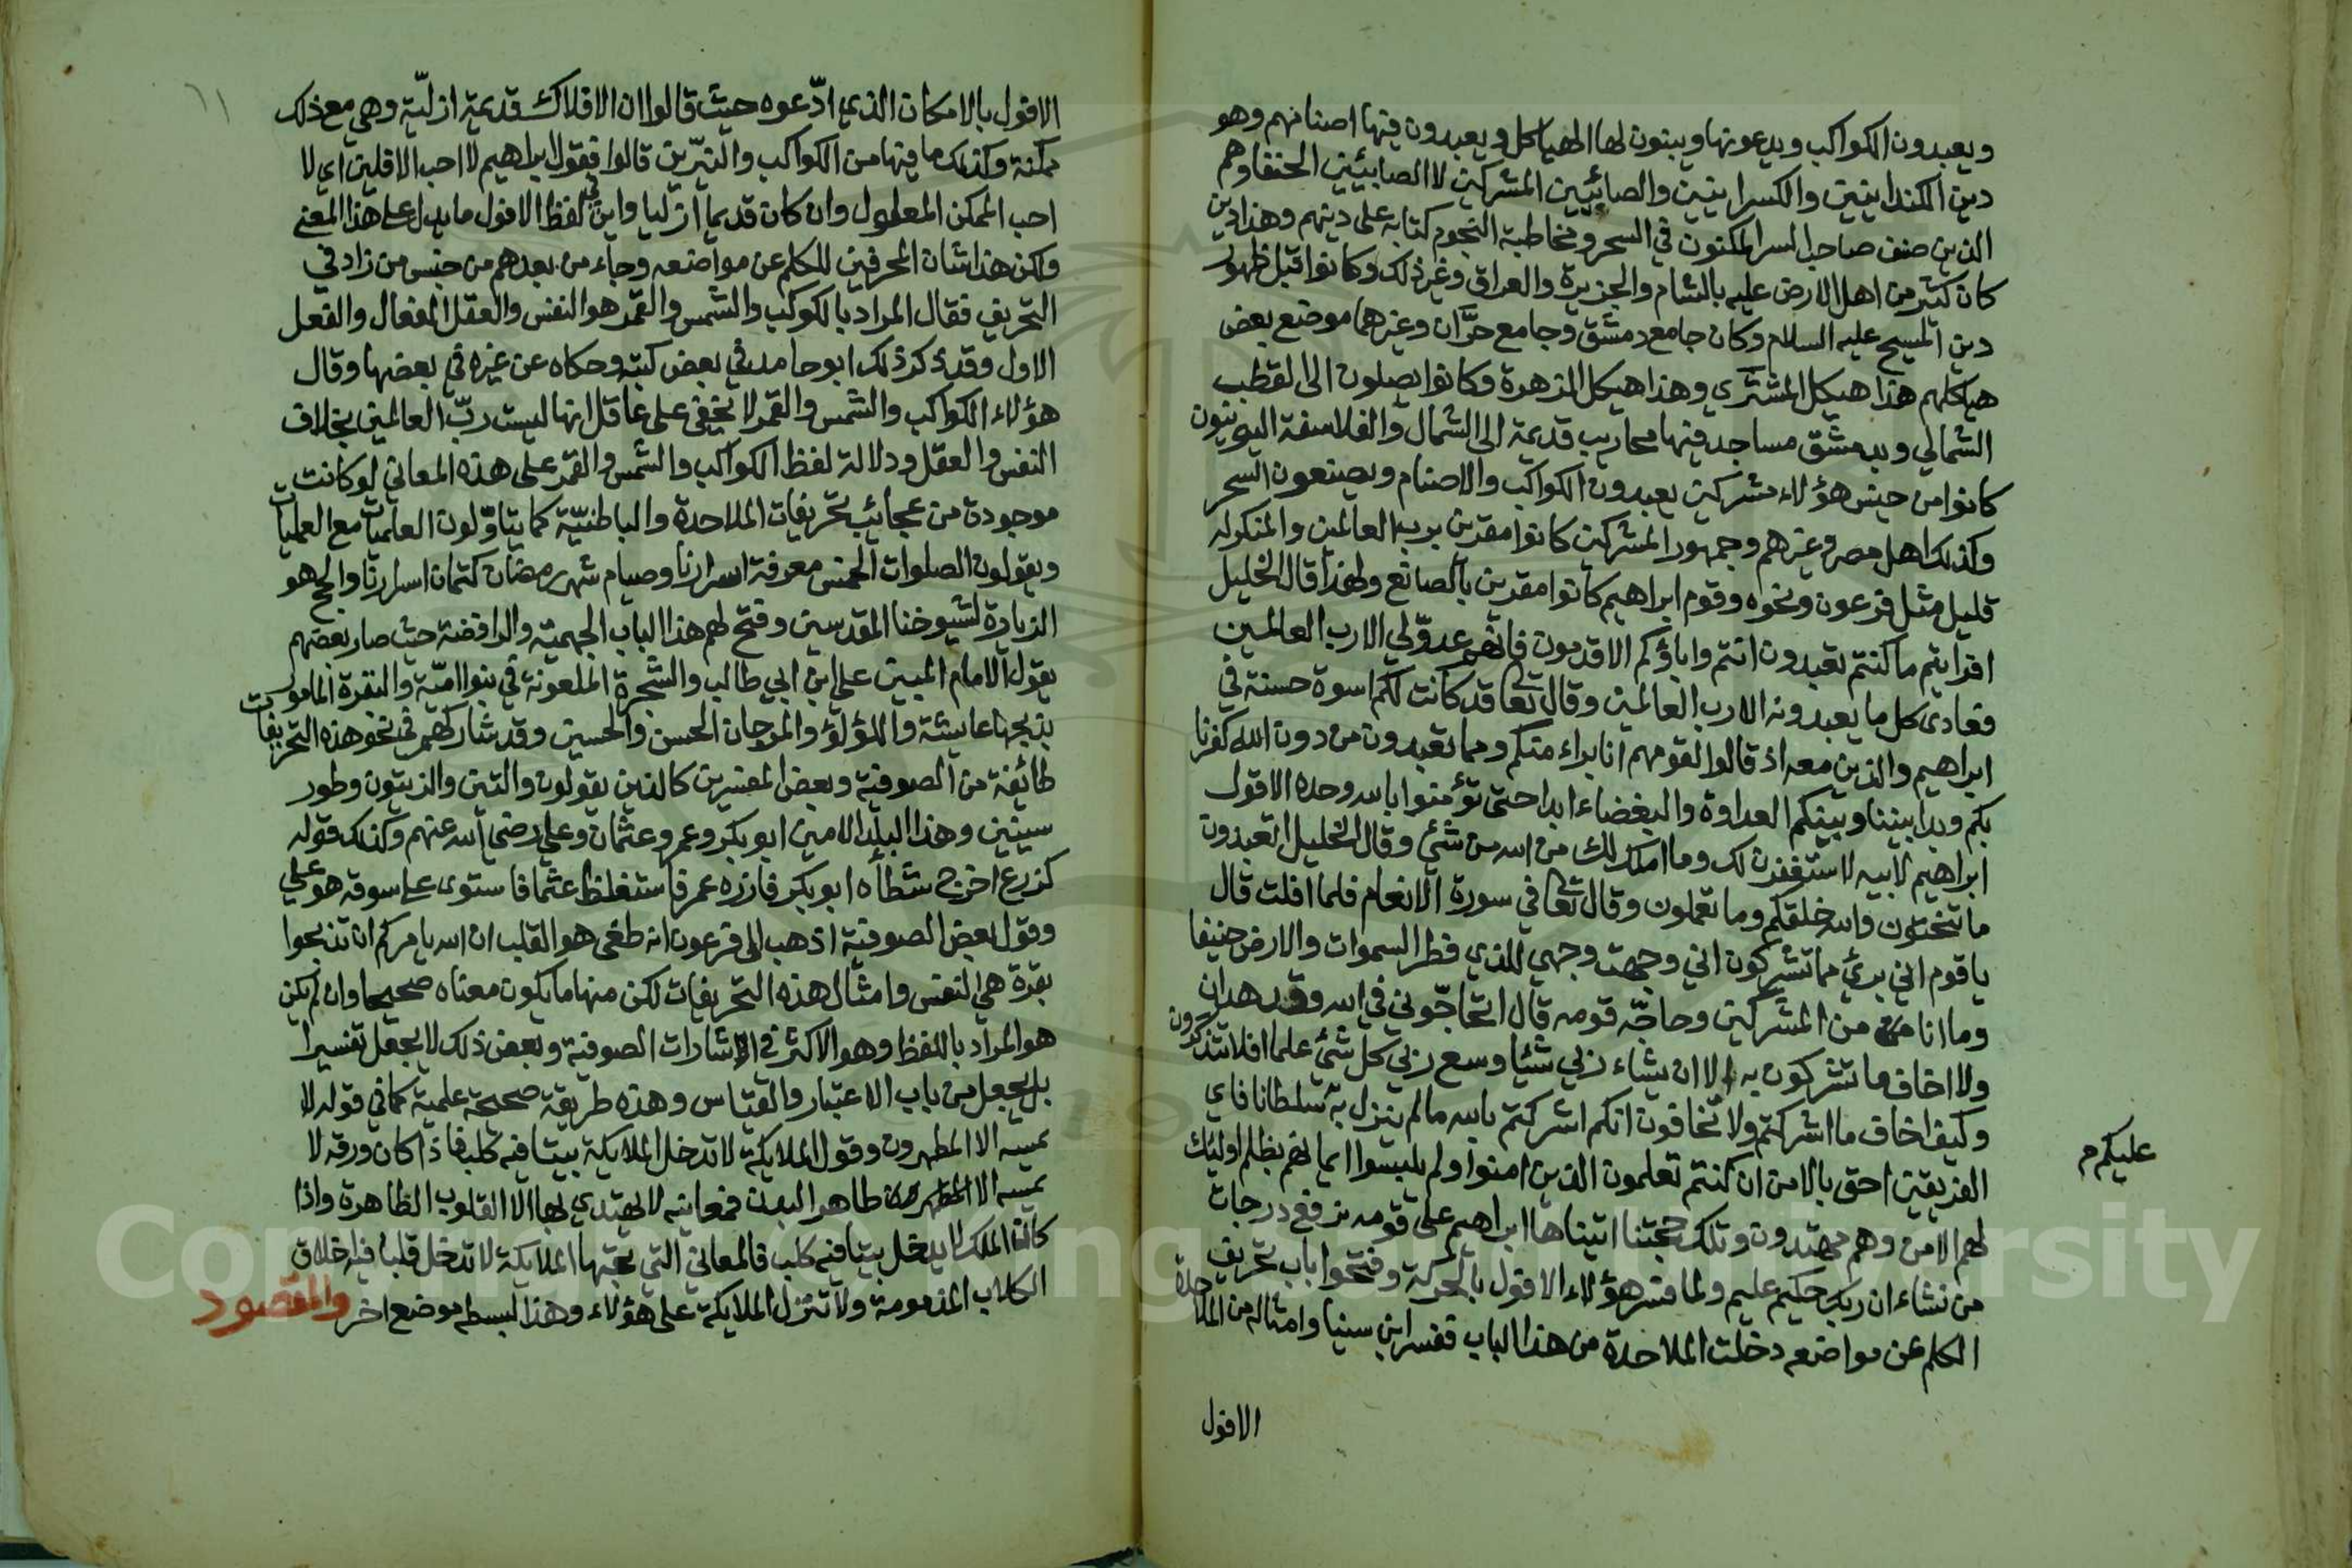 ويعبدون الكواكب ويدعونها ويبنون لها الهياكل ويعبدون فيها اصنامهم وهو
دين الكندانيين والكسرانيين والصابئيين المشركين لا الصابئيين الحنفا وهم
الذين صنف صاحب السر المكنون في السحر ومخاطبة النجوم كتابه على دينهم وهذا دين
كان كثير من اهل الارض عليه بالشام والجزيرة والعراق وغير ذلك وكانوا قبل ظهور
دين المسيح عليه السلام وكان جامع دمشق وجامع حرَّان وغيرهما موضع بعض
هياكلهم هذا هيكل المشتري وهذا هيكل الزهرة وكانوا يصلون الى القطب
الشمالي وبدمشق مساجد فيها محاريب قديمة الى الشمال والفلاسفة اليونيون
كانوا من جنس هؤلاء مشركين يعبدون الكواكب والاصنام ويصنعون السحر
وكذلك اهل مصر وغيرهم وجمهور المشركين كانوا مقرين برب العالمين والمنكر له
قليل مثل فرعون ونحوه وقوم ابراهيم كانوا مقرين بالصانع ولهذا قال الخليل
افرايتم ما كنتم تعبدون انتم واباؤكم الاقدمون فانهم عدوّ لي الا رب العالمين
فعادى كل ما يعبدونه الا رب العالمين وقال تعالى قد كانت لكم اسوة حسنة في
ابراهيم والذين معه اذ قالوا لقومهم انا براء منكم ومما تعبدون من دون الله كفرنا
بكم وبدا بيننا وبينكم العداوة والبغضاء ابدا حتى تؤمنوا بالله وحده الا قول
ابراهيم لابيه لاستغفرن لك وما املك لك من الله من شئ وقال الخليل اتعبدون
ما تنحتون والله خلقكم وما تعملون وقال تعالى في سورة الانعام فلما افلت قال
يا قوم اني برئ مما تشركون اني وجهت وجهي للذي فطر السموات والارض حنيفا
وما انا من المشركين وحاجّه قومه قال اتحاجّوني في الله وقد هدان
ولا اخاف ما تشركون به الا ان يشاء ربي شئيا وسع ربي كل شئ علما افلا تتذكرون
وكيف اخاف ما اشركتم ولا تخافون انكم اشركتم بالله ما لم ينزل به سلطانا فاي
عليكم م
الفريقين احق بالامن ان كنتم تعلمون الذين امنوا ولم يلبسوا ايمانهم بظلم اوليئك
لهم الامن وهم مهتدون وتلك حجتنا اتيناها ابراهيم على قومه نرفع درجات
من نشاء ان ربك حكيم عليم ولما فسر هؤلاء الافول بالحركة وفتحوا باب تحريف
الكلم عن مواضعه دخلت الملاحدة من هذا الباب ففسر ابن سينا وامثاله من الملاحدة
الافول
١١
الافول بالامكان الذي ادّعوه حيث قالوا ان الافلاك قديمة ازليّة وهي مع ذلك
ممكنة وكذلك ما فيها من الكواكب والنيّرين قالوا فقول ابراهيم لا احب الافلين اي لا
احب الممكن المعلول وان كان قديما ازليا واين في لفظ الافول ما يدل على هذا المعنى
ولكن هذا شان المحرفين للكلم عن مواضعه وجاء من بعدهم من جنس من زاد في
التحريف فقال المراد بالكوكب والشمس والقمر هو النفس والعقل الفعال والفعل
الاول وقد ذكر ذلك ابو حامد في بعض كتبه وحكاه عن غيره في بعضها وقال
هؤلاء الكواكب والشمس والقمر لا يخفى على عاقل انها ليست ربّ العالمين بخلاف
النفس والعقل ودلالة لفظ الكواكب والشمس والقمر على هذه المعاني لو كانت
موجودة من عجائب تحريفات الملاحدة والباطنيّة كما يتاوّلون العلميات مع العمليات
ويقولون الصلوات الخمس معرفة اسرارنا وصيام شهر رمضان كتمان اسرارنا والحج هو
الزيارة لشيوخنا المقدسين وفتح لهم هذا الباب الجهمية والرافضة حيث صار بعضهم
يقول الامام المبين علي ابن ابي طالب والشجرة الملعونة في بنوا اميّة والبقرة المامور
بذبحها عايشة واللؤلؤ والمرجان الحسن والحسين وقد شاركهم في نحو هذه التحريفات
طائفة من الصوفية وبعض المفسرين كالذين يقولون والتين والزيتون وطور
سينين وهذا البلد الامين ابو بكر وعمر وعثمان وعلي رضي الله عنهم وكذلك قوله
كزرع اخرج شطأه ابو بكر فازره عمر فاستغلظ عثما فاستوى على سوقه هو علي
وقول بعض الصوفية اذهب الى فرعون انه طغى هو القلب ان الله يامركم ان تذبحوا
بقرة هي النفس وامثال هذه التحريفات لكن منها ما يكون معناه صحيحا وان لم يكن
هو المراد باللفظ وهو الاكثر في اشارات الصوفية وبعض ذلك لا يجعل تفسيرا
بل يجعل من باب الاعتبار والقياس وهذه طريقة صحيحة علمية كما في قوله لا
يمسه الا المطهرون وقول الملايكة لا تدخل الملايكة بيتا فيه كلب فاذا كان ورقه لا
يمسه الا طاهر البدن فمعانيه لا يهتدي بها الا القلوب الطاهرة واذا
كان الملك لا يدخل بيتا فيه كلب فالمعاني التي تحبها الملايكة لا تدخل قلبا فيه اخلاق
الكلاب المذمومة ولا تنزل الملايكة على هؤلاء وهذا لبسطه موضع اخر والمقصود
Copyright © King Saud University